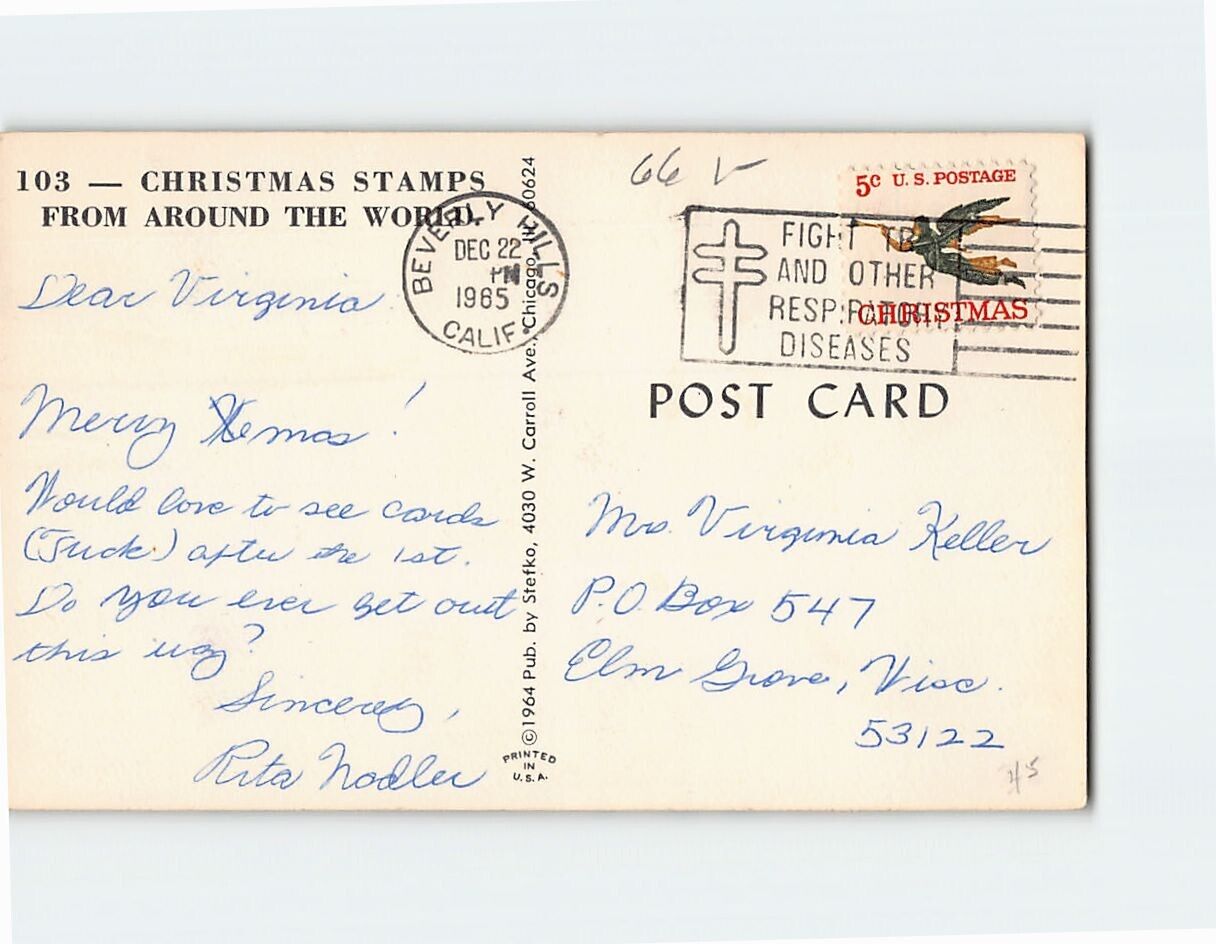 103 — CHRISTMAS STAMPS
FROM AROUND THE WORLD.
BEVERLY HILLS
DEC 22
PM
1965
CALIF.
Dear Virginia
Merry Xmas!
Would love to see cards
(Juck) after the 1st.
Do you ever get out
this way?
Sincerely,
Rita Nodler
©1964 Pub. by Stefko, 4030 W. Carroll Ave., Chicago, Ill. 60624
PRINTED
IN
U.S.A.
66 V
5c U.S. POSTAGE
CHRISTMAS
FIGHT TB
AND OTHER
RESPIRATORY
DISEASES
POST CARD
Mrs. Virginia Keller
P.O. Box 547
Elm Grove, Wisc.
53122
45